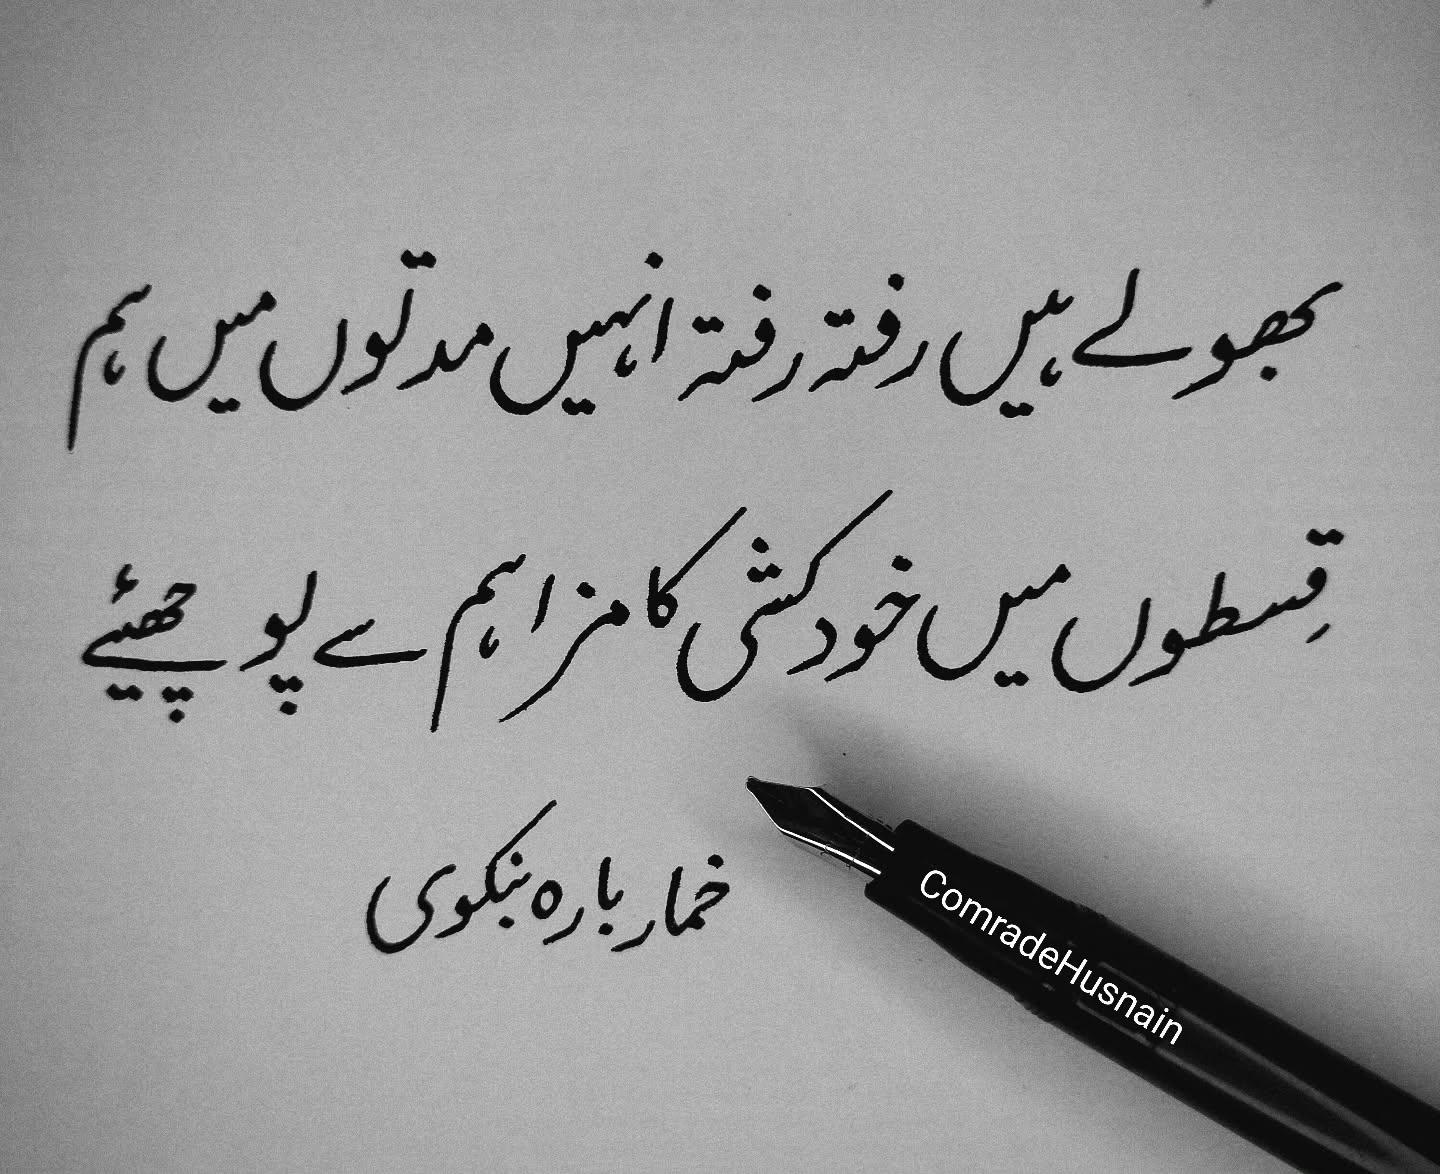 بھولے ہیں رفتہ رفتہ انہیں مدتوں میں ہم
قِسطوں میں خودکشی کا مزا ہم سے پوچھئیے
خمار بارہ بنکوی
ComradeHusnain